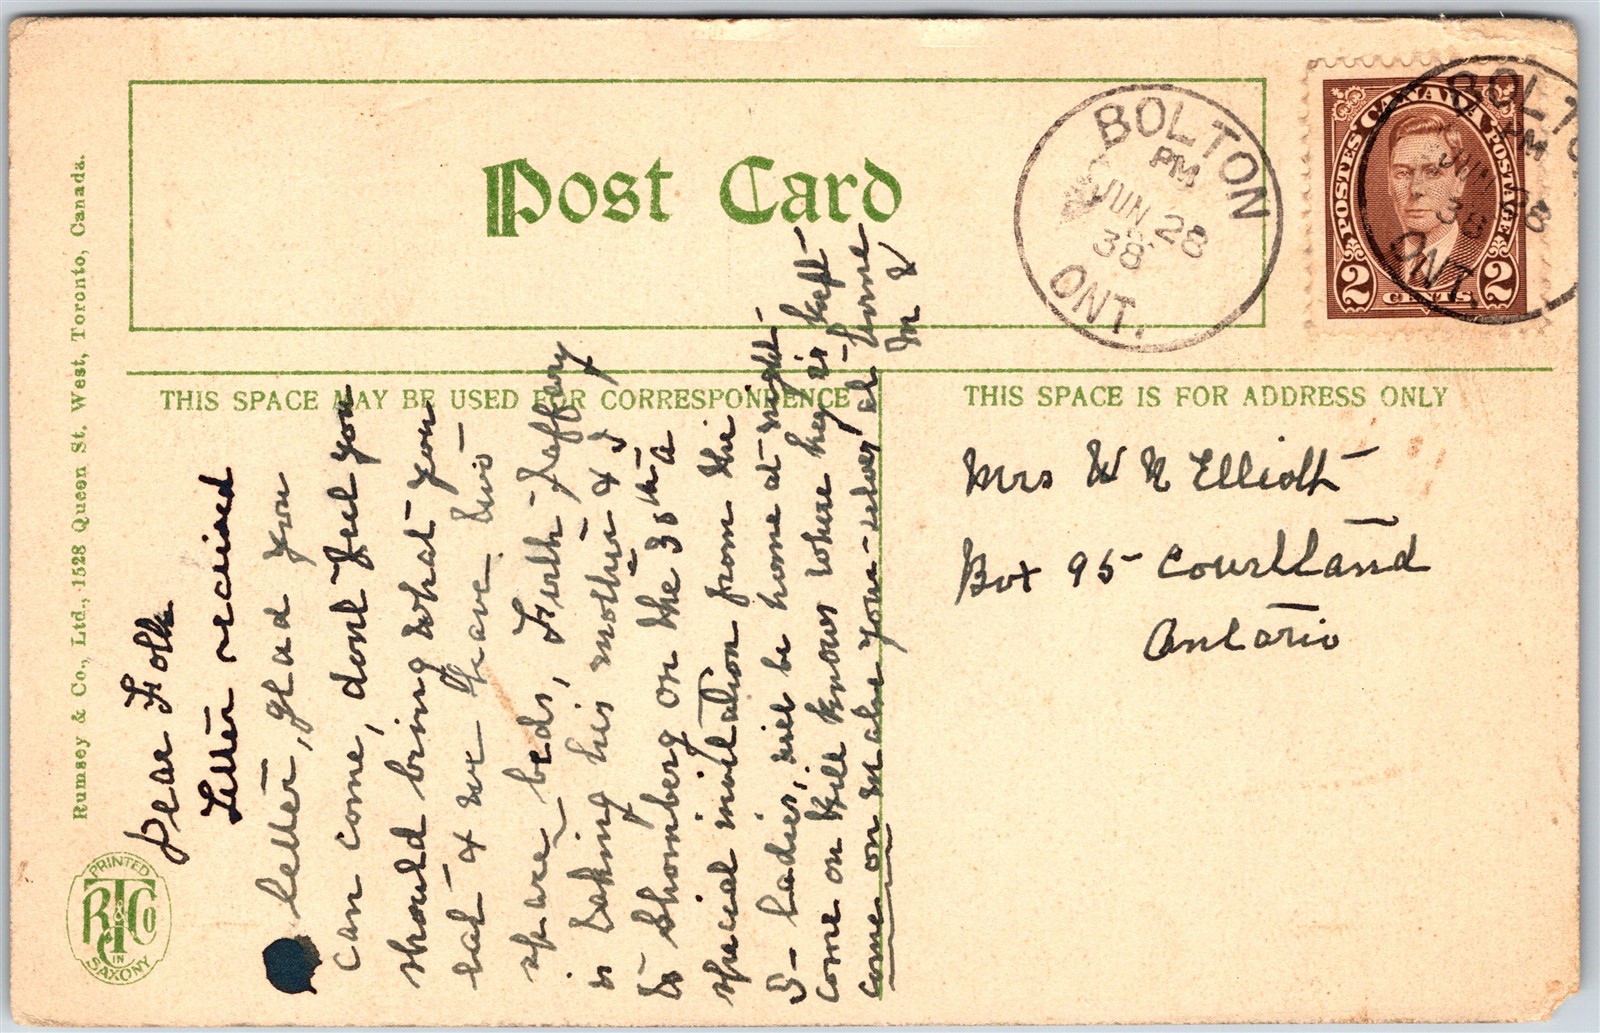 Post Card
BOLTON
PM
JUN 28
38
ONT.
BOLTO
PM
JUN 28
38
ONT.
POSTES CANADA POSTAGE
2 CENTS 2
THIS SPACE MAY BE USED FOR CORRESPONDENCE
THIS SPACE IS FOR ADDRESS ONLY
Rumsey & Co., Ltd., 1528 Queen St. West, Toronto, Canada.
PRINTED
IN
SAXONY
Dear Folk
Letter recieved
letter, glad you
can come, dont feel you
should bring what you
eat & we have two
spare beds, Firth Jaffary
is taking his mother & I
to Shomberg on the 30th a
special invitation from the
I- Ladies, will be home at night-
come on Bill knows where key is kept-
come on make your-selves at-home
M &
Mrs W N Elliott
Box 95 Courtland
Ontario